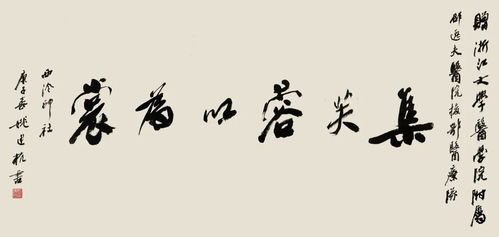 贈浙江大學醫學院附屬
邵逸夫醫院援鄂醫療隊
集芙蓉以為裳
西泠印社
庚子春姚建杭書